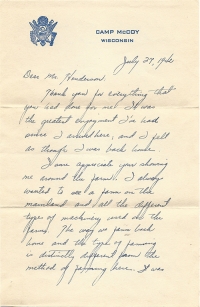 CAMP McCOY
WISCONSIN
July 27, 1942
Dear Mr. Henderson:
Thank you for everything that
you had done for me. It was
the greatest enjoyment I've had
since I arrived here, and I felt
as though I was back home.
I sure appreciate your showing
me around the farm. I always
wanted to see a farm on the
mainland and all the different
types of machinery used on the
farms. The way we farm back
home and the type of farming
is distinctly different from the
method of farming here. It was